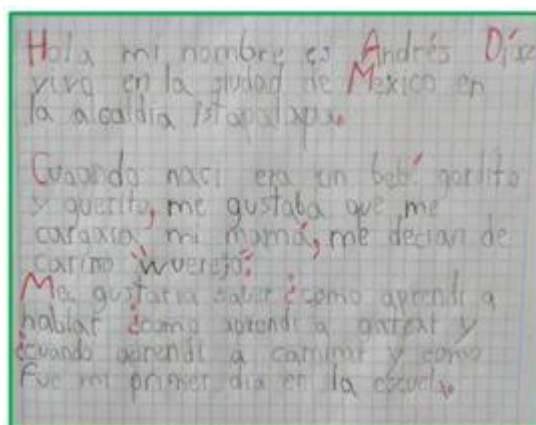 Hola mi nombre es Andrés Díaz
vivo en la ciudad de Mexico en
la alcaldía istapalapa.
Cuando naci era un bebé gordito
y guerito, me gustaba que me
mi mamá, me decian de
cariño "wuerejo".
Me gustaria saber ¿como aprendi a
hablar ¿como aprendi a gatear y
¿cuando aprendi a caminar y como
fue mi primer dia en la escuela.